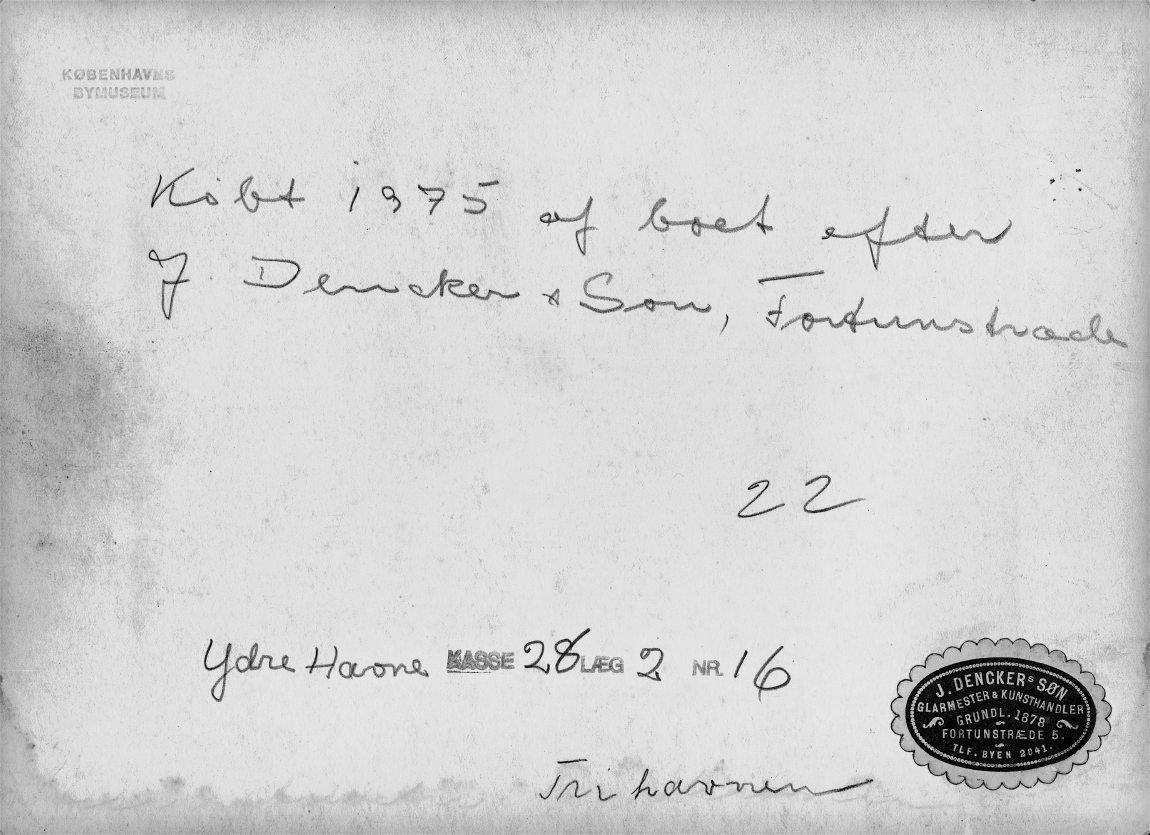 KØBENHAVNS
BYMUSEUM
Købt 1975 af boet efter
J. Dencker & Søn, Fortunstræde
22
Ydre Havne KASSE 28 LÆG 2 NR. 16
J. DENCKERS SØN
GLARMESTER & KUNSTHANDLER
GRUNDL. 1878
FORTUNSTRÆDE 5.
TLF. BYEN 2041.
Frihavnen